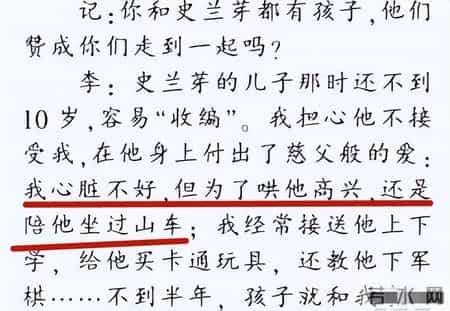 记:你和史兰芽都有孩子,他们
赞成你们走到一起吗?
李:史兰芽的儿子那时还不到
10岁,容易“收编”。我担心他不接
受我,在他身上付出了慈父般的爱:
我心脏不好,但为了哄他高兴,还是
陪他坐过山车;我经常接送他上下
学,给他买卡通玩具,还教他下军
棋……不到半年,孩子就和我
若冰网